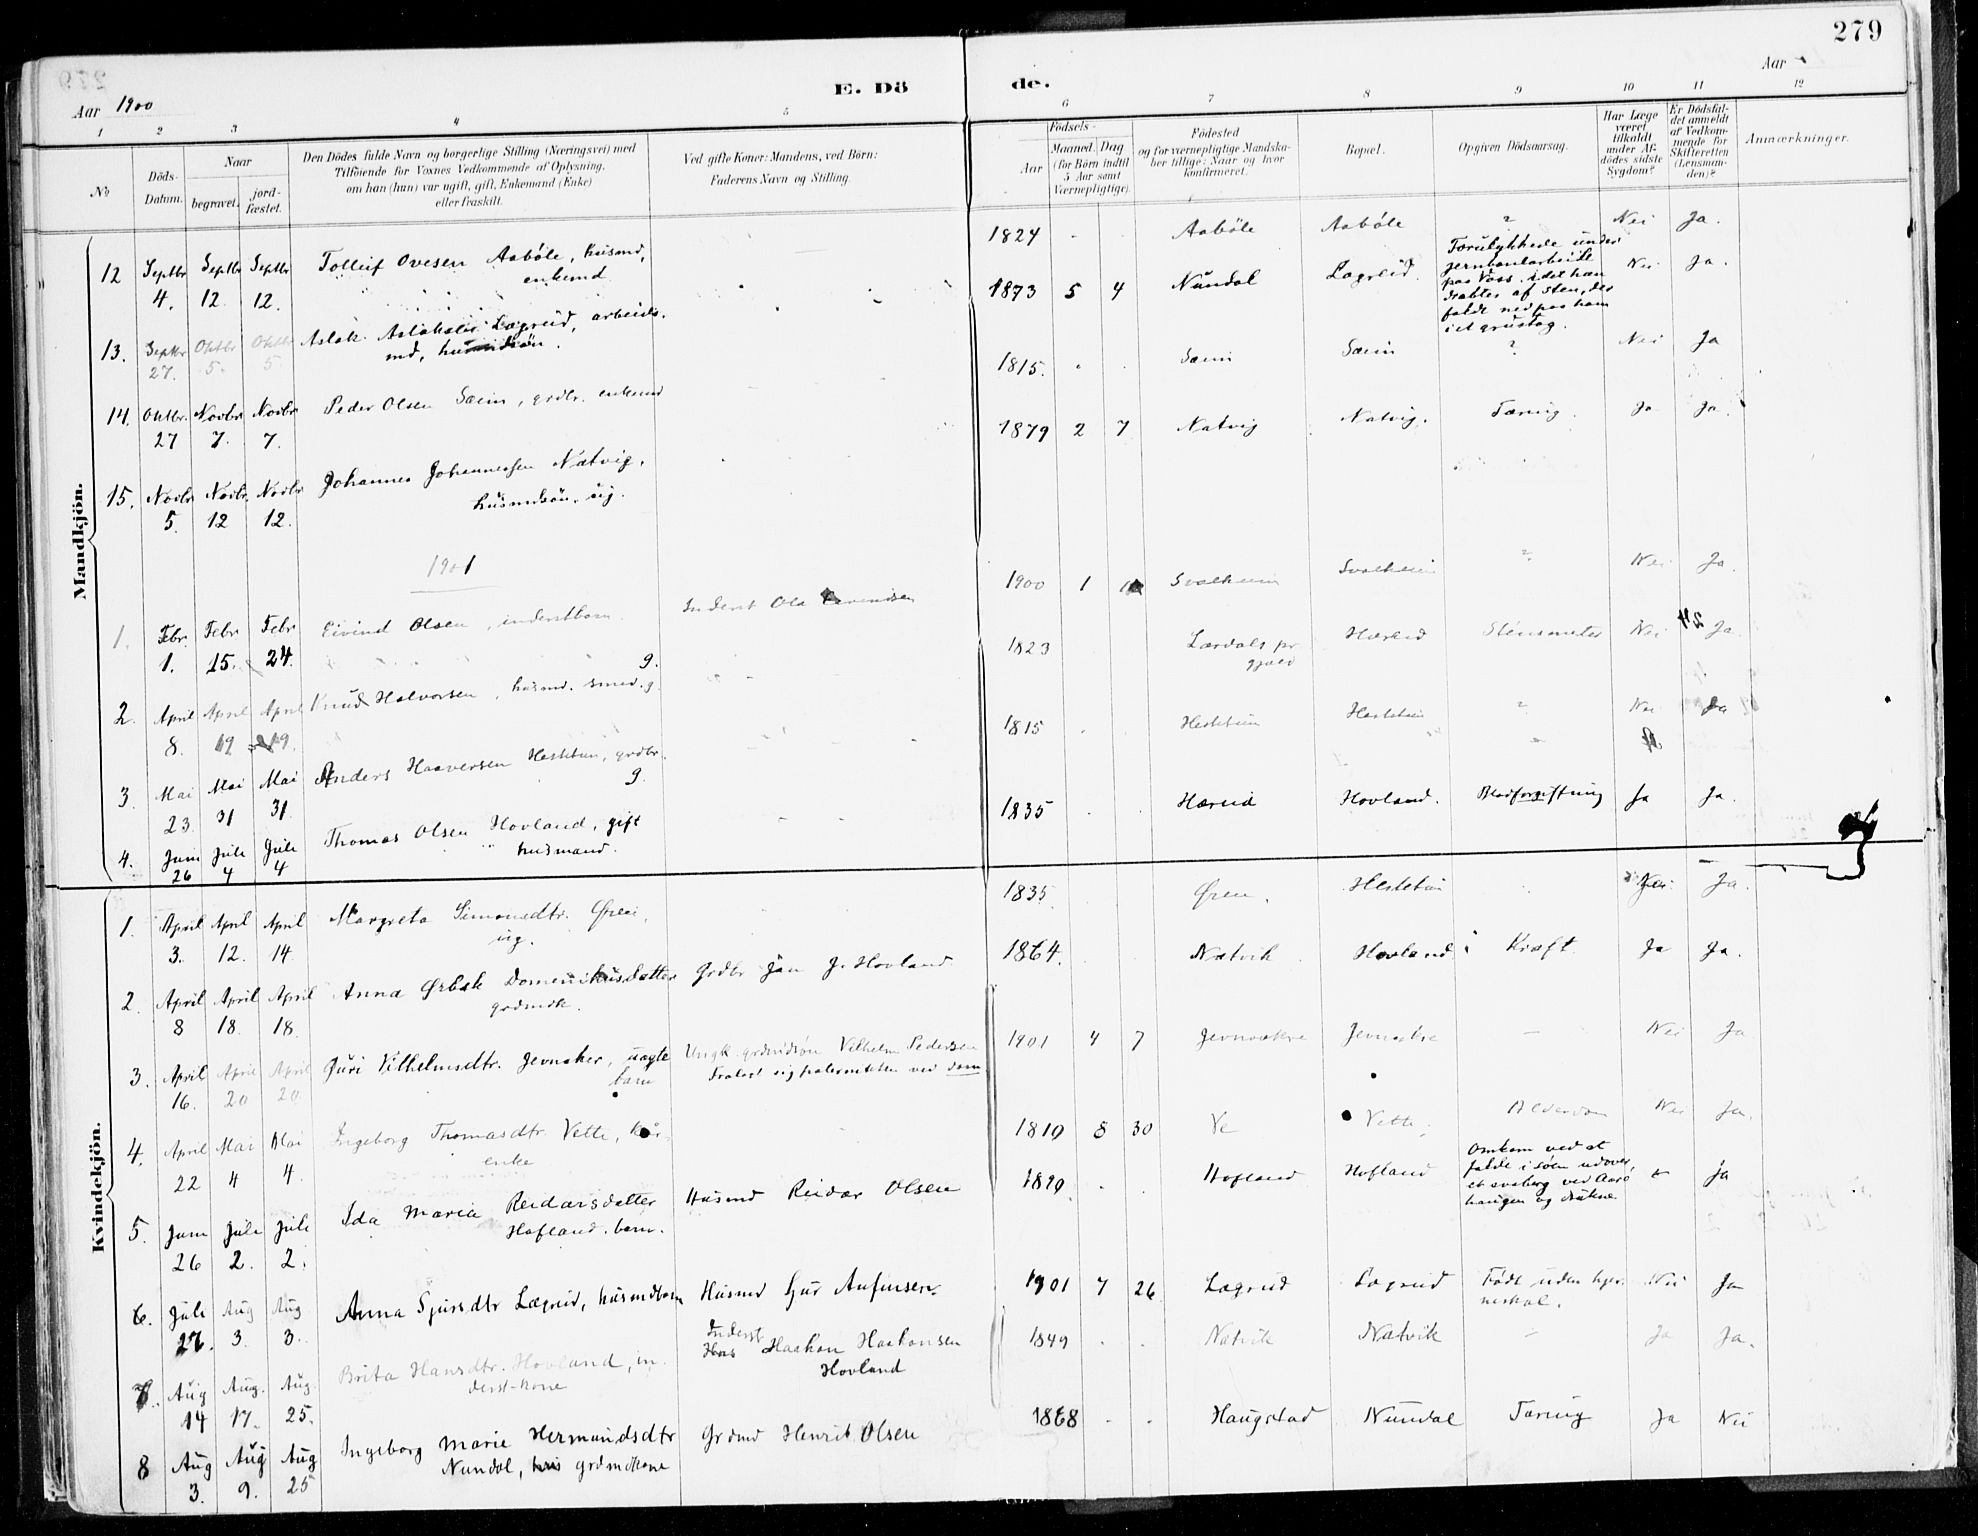 279
Aar 1900
E. Dö de.
Aar
1 2 3 4 5 6 7 8 9 10 11 12
No
Döds-Datum.
Naar
begravet.
jord-fæstet.
Den Dödes fulde Navn og borgerlige Stilling (Næringsvei) med
Tilföiende for Voxnes Vedkommende af Oplysning,
om han (hun) var ugift, gift, Enkemand (Enke)
eller fraskilt.
Ved gifte Koner: Mandens, ved Börn:
Faderens Navn og Stilling.
Födsels-
Aar
Maaned. Dag
(for Börn indtil
5 Aar samt
Værnepligtige).
Födested
og for værnepligtige Mandska-
ber tillige: Naar og hvor
konfirmeret.
Bopæl.
Opgiven Dödsaarsag.
Har Læge
været
tilkaldt
under Af-
dödes sidste
Sygdom?
Er Dödsfal-
det anmeldt
af Vedkom-
mende for
Skifteretten
(Lensman-
den)?
Anmærkninger.
Mandkjön.
12 Septbr 4. Septbr 12. Septbr 12. Tolleif Ovesen Aaböle, husmd, enkemd 1824 Aaböle Aaböle ? Nei Ja.
13. Septbr 27. Oktbr 5. Oktbr 5. Aslak Aslaksen Lægreid, arbeids-
md, 1873 5 4 Nundal Lægreid. Forulykkede under
jernbanearbeide
paa Voss, idet han
dræbtes af sten, der
faldt ned paa ham
i et grustag. Nei Ja.
14. Oktbr. 27 Novbr 7. Novbr 7. Peder Olsen Sæim, grdbr. enkemd 1815. Sæim Sæim ? Nei Ja
15. Novbr 5. Novbr. 12 Novbr 12. Johannes Johannessen Natvig,
husmdsön, ug. 1879 2 7 Natvig Natvig. Tæring. Ja Ja.
1901
1. Febr. 1. Febr 15. Febr 24. Eivind Olsen, inderstbarn. Inderst Ola 1900 1 Svalheim Svalheim ? Nei Ja.
2. April 8. April 19 April 19. Knud Halvorsen, husmd. smed. g. 1823 Lærdals pr
gjæld Hæreid Nei Ja.
3. Mai 23. Mai 31 Mai 31. Anders Haaversen Hestetun, grdbr.
g. 1815 Hestetun Hestetun ? Nei Ja
4. Juni 26 Juli 4 Juli 4 Thomas Olsen Hovland, gift
husmand. 1835 Hæreid Hovland. Blodforgiftning Ja Ja.
Kvindekjön.
1. April 3. April 12. April 14. Margreta Simonsdtr. Ören,
ug. 1835. Ören. Hestetun Nei. Ja.
2. April 8 April 18. April 18. Anna Örbæk Domenikusdatter
grdmdk. Grdbr Jan J. Hovland 1864. Natvik Hovland Kræft Ja Ja.
3. April 16. April 20 April 20 Guri Vilhelmsdtr. Jevnaker, uægte
barn Ungk. grdmdsön Vilhelm Pedersen
Fralagt sig paterniteten ved dom 1901 4 7 Jevnaker Jevnaker – Nei Ja
4. April 22 Mai 4 Mai 4. Ingeborg Thomasdtr. Vetti, kår-
enke 1819 8 30 Ve Vetti. Alderdom Nei Ja.
5. Juni 26 Juli 2. Juli 2. Ida Maria Reidarsdatter
Hofland. barn. Husmd Reidar Olsen Hofland Hofland Omkom ved at
falde i söen udover
et svaberg ved Aarö
haugen og drukne Ja
6. Juli 27. Aug 3. Aug. 3. Anna Sjursdtr Lægreid, husmdbarn Husmd Sjur Anfinsen. 1901 7 26 Lægreid Lægreid Födt uden hjer-
neskal. Nei Ja
7. Aug 14 Aug. 17. Aug. 25. Brita Hansdtr. Hovland, in-
derst-kone Inderst
Haakon Haakonsen
Hovland 1849 Natvik Natvik – Ja Ja.
8 Aug 3. Aug 9. Aug 25 Ingeborg Marie Hermundsdtr
Nundal, grdmdkone Grdmd Henrik Olsen 1868 Haugstad Nundal Tæring Ja Nei